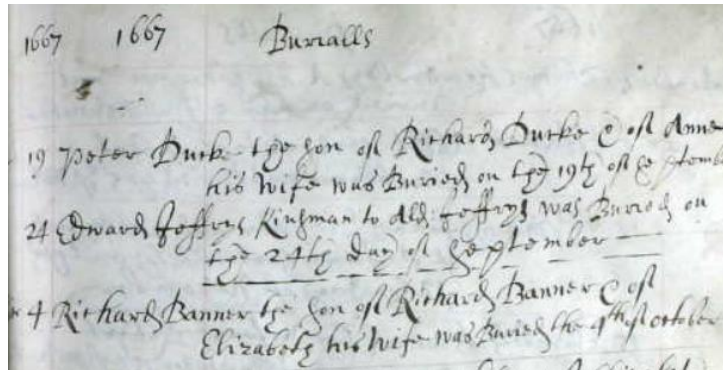 1667 1667 Burialls
19 Peter Ducke the son of Richard Ducke & of Anne
his Wife was Buried on the 19th of Septemb
24 Edward Jeffrys Kinsman to Ald: Jeffrys was Buried on
the 24th day of September
4 Richard Banner the son of Richard Banner & of
Elizabeth his Wife was Buried the 4th of October